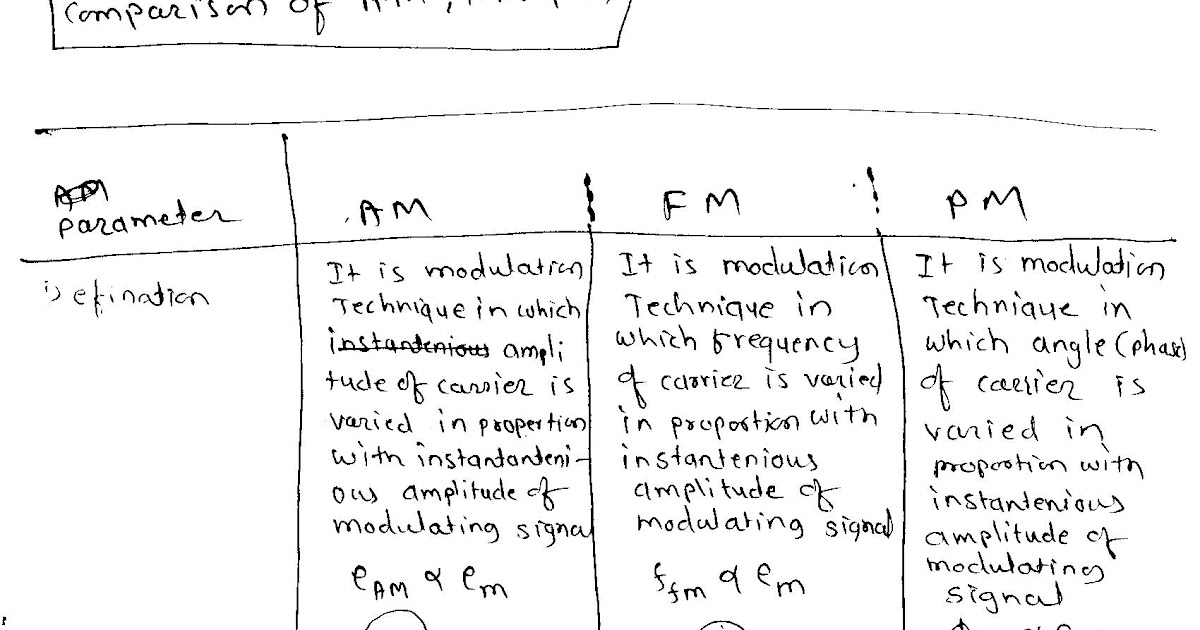 Comparison of
Parameter
AM
FM
PM
Defination
It is modulation
Technique in which
instantenious ampli
tude of carrier is
varied in propertion
with instantanteni-
ous amplitude of
modulating signal
eAM ∝ em
It is modulation
Technique in
which frequency
of carrier is varied
in proportion with
instantenious
amplitude of
modulating signal
ffm ∝ em
It is modulation
Technique in
which angle (phase)
of carrier is
varied in
proportion with
instantenious
amplitude of
modulating
signal